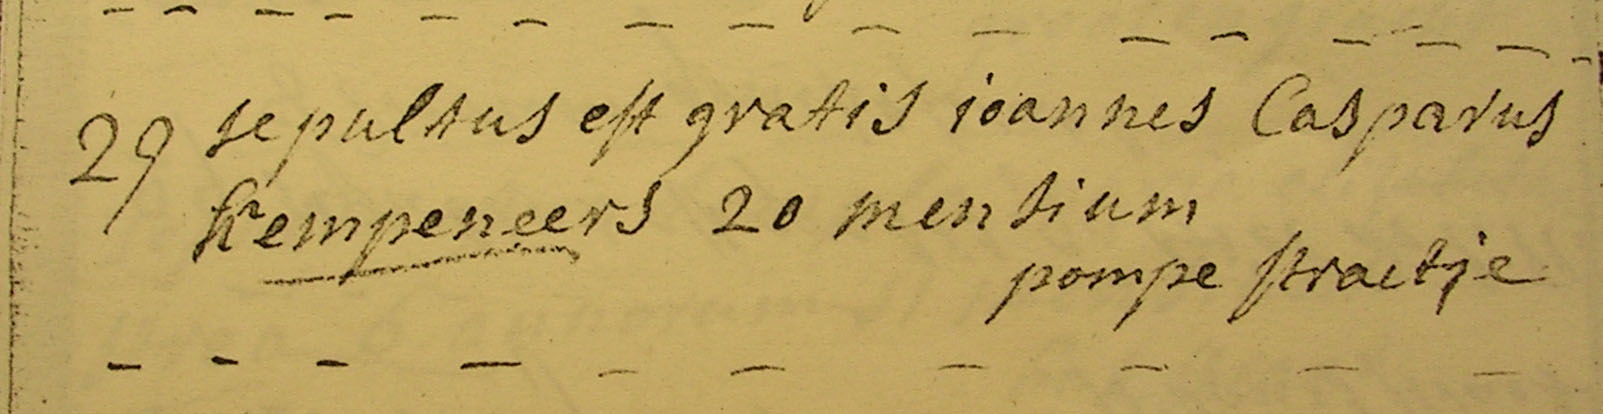 29 sepultus est gratis ioannes Casparus
Kempeneers 20 mensium
pompe straetje